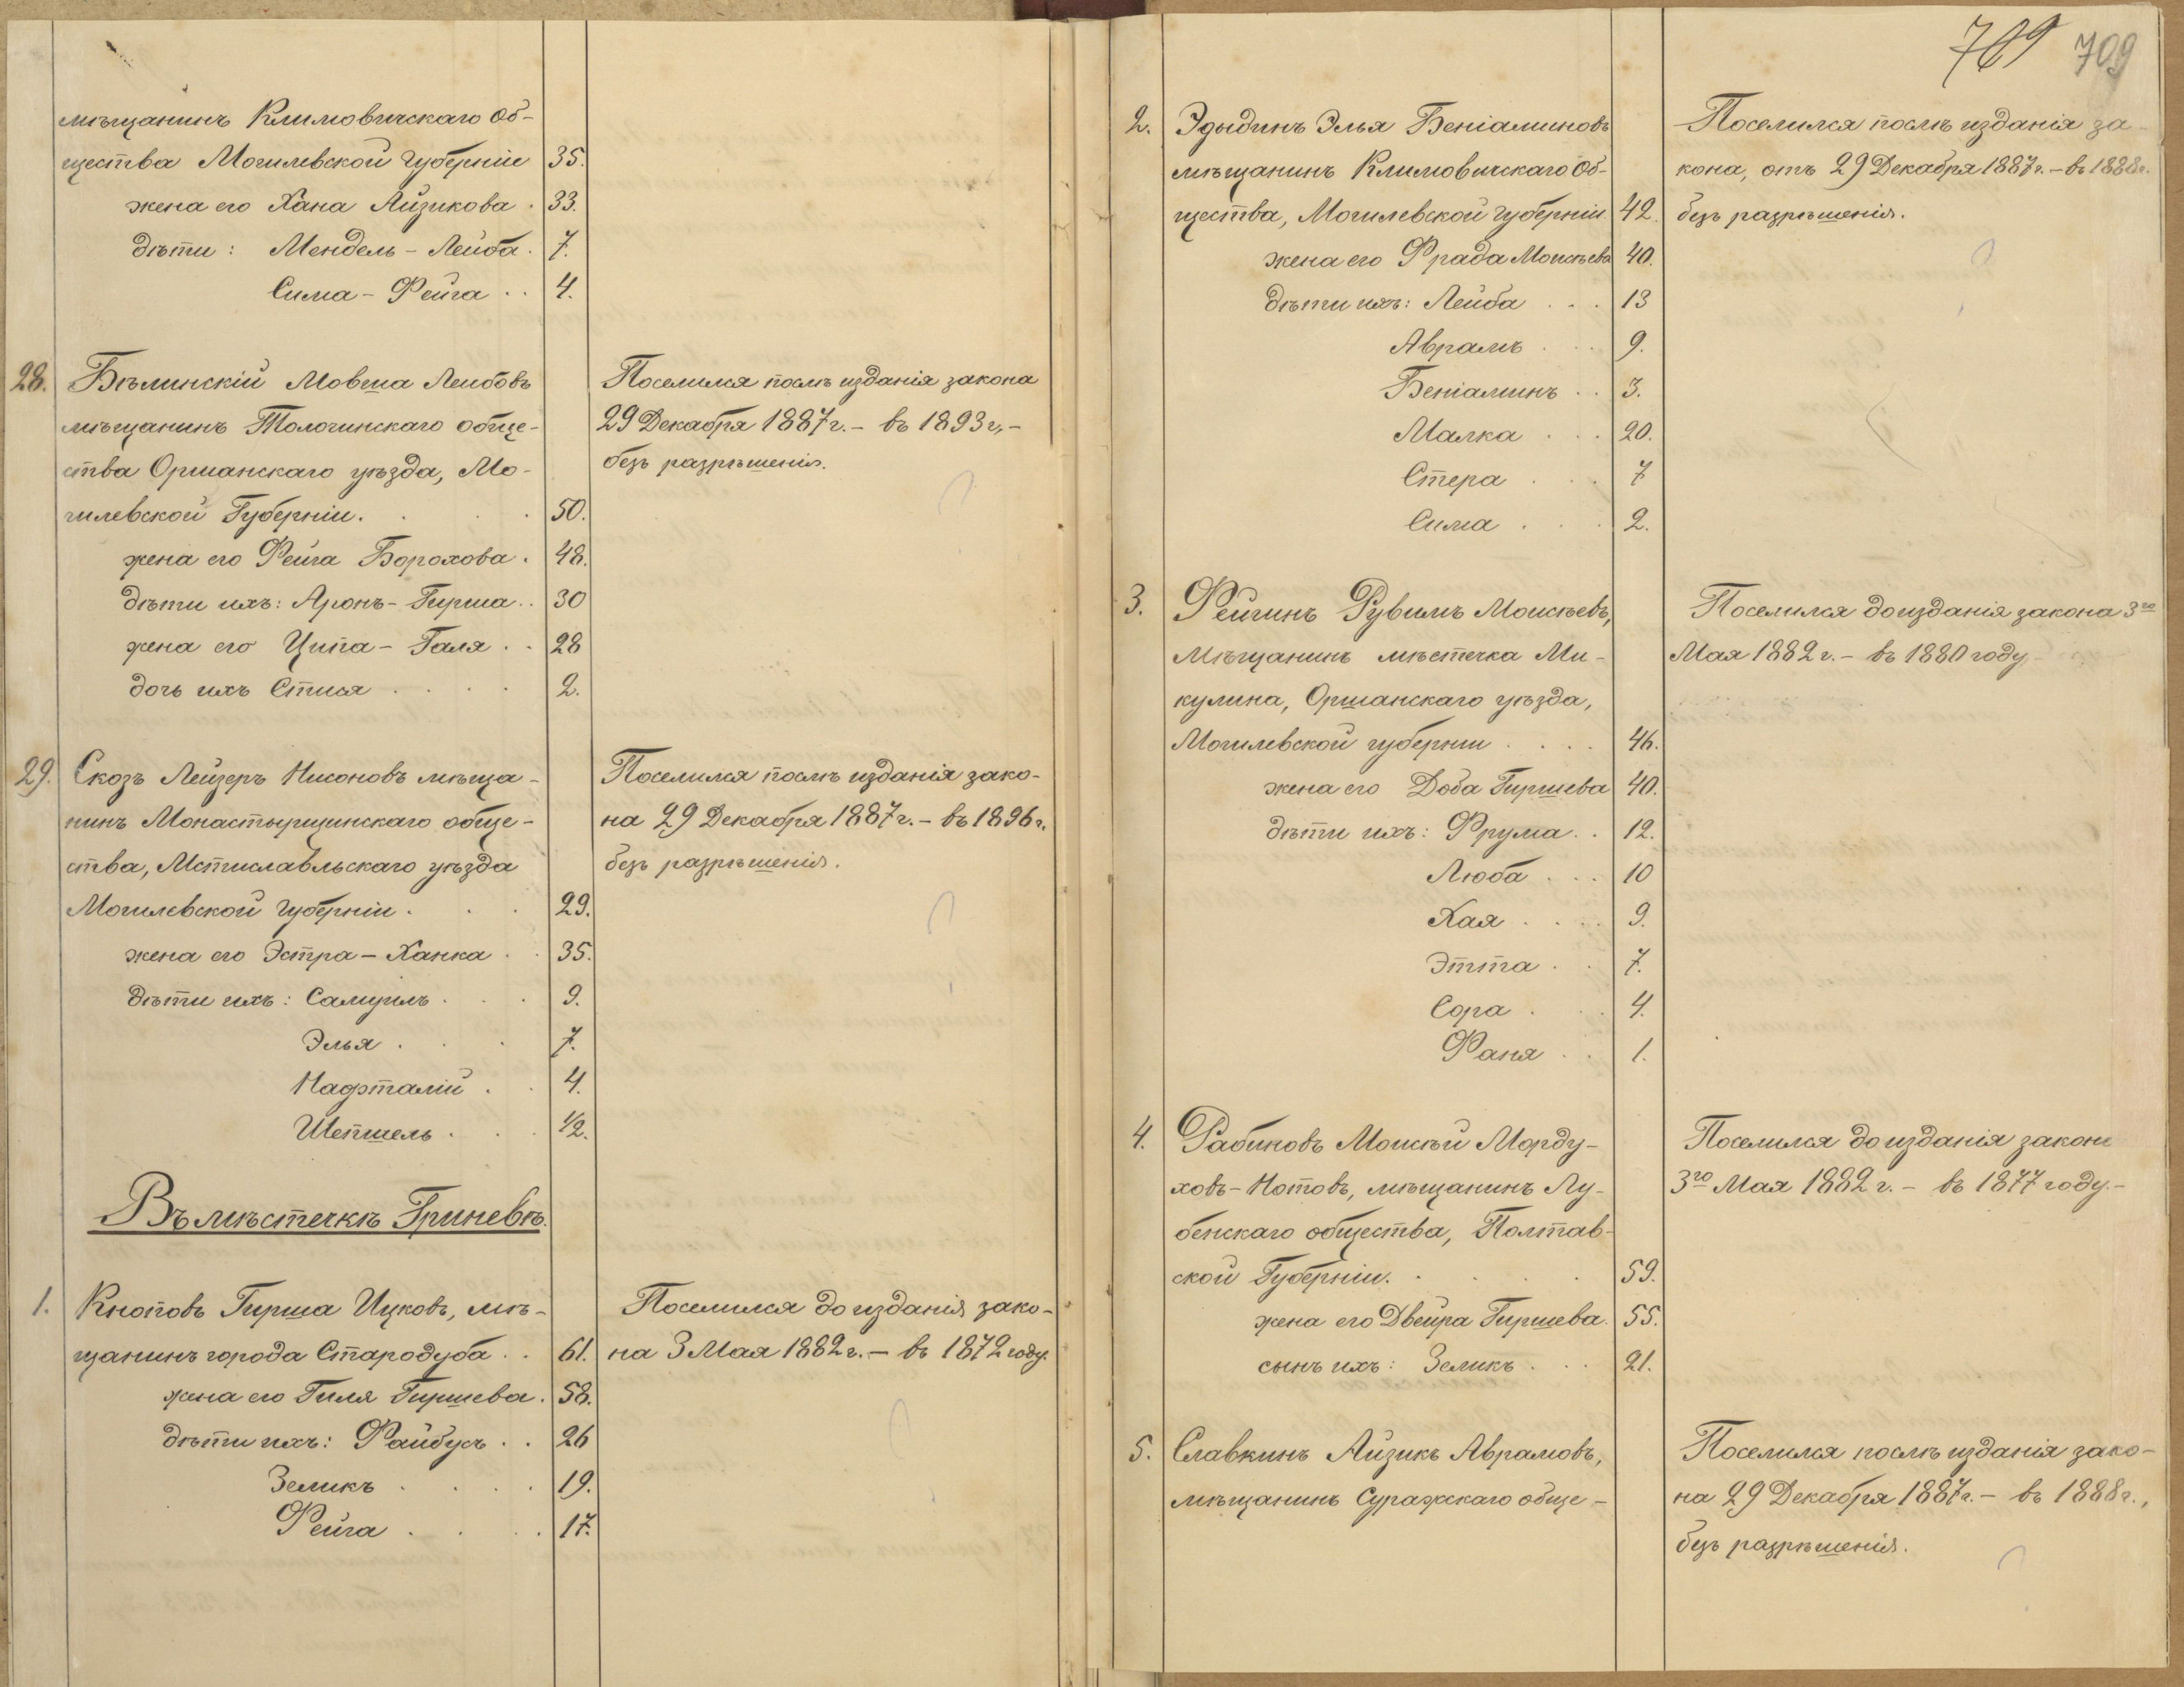 мѣщанинъ Климовичскаго об-
щества Могилевской губерніи 35.
жена его Хана Айзикова . 33.
дѣти : Мендель - Лейба . 7.
Сима - Фейга . . 4.
28. Бѣлинскій Мовша Лейбовъ
мѣщанинъ Толочинскаго обще-
ства Оршанскаго уѣзда, Мо-
гилевской Губерніи. . . . 50.
жена его Фейга Борохова . 48.
дѣти ихъ: Аронъ - Гирша . . 30
жена его Ципа - Галя . . 28
дочь ихъ Стися . . . . 2.
Поселился послѣ изданія закона
29 Декабря 1887 г. - въ 1893 г, -
безъ разрѣшенія.
29. Скозъ Лейзеръ Нисоновъ мѣща-
нинъ Монастырщинскаго обще-
ства, Мстиславльскаго уѣзда
Могилевской губерніи . . . 29.
жена его Эстра - Ханка . . 35.
дѣти ихъ: Самуилъ . . . 9.
Элья . . . 7.
Нафталій . . 4.
Шепшель . . . 1/2.
Поселился послѣ изданія зако-
на 29 Декабря 1887 г. - въ 1896 г.
безъ разрѣшенія.
Въ мѣстечкѣ Гриневѣ.
1. Кноповъ Гирша Ицковъ, мѣ-
щанинъ города Стародуба . . 61.
жена его Гиля Гиршева . 58.
дѣти ихъ: Файбусъ . . 26
Зеликъ . . . . 19.
Фейга . . . . 17.
Поселился до изданія зако-
на 3 Мая 1882 г. - въ 1872 году.
709 709
2. Эдыдинъ Элья Беніаминовъ
мѣщанинъ Климовичскаго об-
щества, Могилевской губерніи 42.
жена его Фрада Моисѣева 40.
дѣти ихъ: Лейба . . . 13
Аврамъ . . . 9.
Беніаминъ . . 3.
Малка . . . 20.
Стера . . . 7
Сима . . . 2.
Поселился послѣ изданія за-
кона, отъ 29 Декабря 1887 г. - въ 1888 г.
безъ разрѣшенія.
3. Фейгинъ Рувимъ Моисѣевъ,
мѣщанинъ мѣстечка Ми-
кулина, Оршанскаго уѣзда,
Могилевской губерніи . . . . 46.
жена его Доба Гиршева 40.
дѣти ихъ: Фрума . . 12.
Люба . . . 10
Хая . . . . 9.
Этта . . 7.
Сора . . . 4.
Фаня . . 1.
Поселился до изданія закона 3го
Мая 1882 г. - въ 1880 году
4. Рабиновъ Моисѣй Морду-
ховъ - Нотовъ, мѣщанинъ Лу-
бенскаго общества, Полтав-
ской Губерніи. . . . . 59.
жена его Двейра Гиршева. 55.
сынъ ихъ: Зеликъ . . . 21.
Поселился до изданія закона
3го Мая 1882 г. - въ 1877 году. -
5. Славкинъ Айзикъ Аврамовъ,
мѣщанинъ Суражскаго обще-
Поселился послѣ изданія зако-
на 29 Декабря 1887 г. - въ 1888 г.,
безъ разрѣшенія.